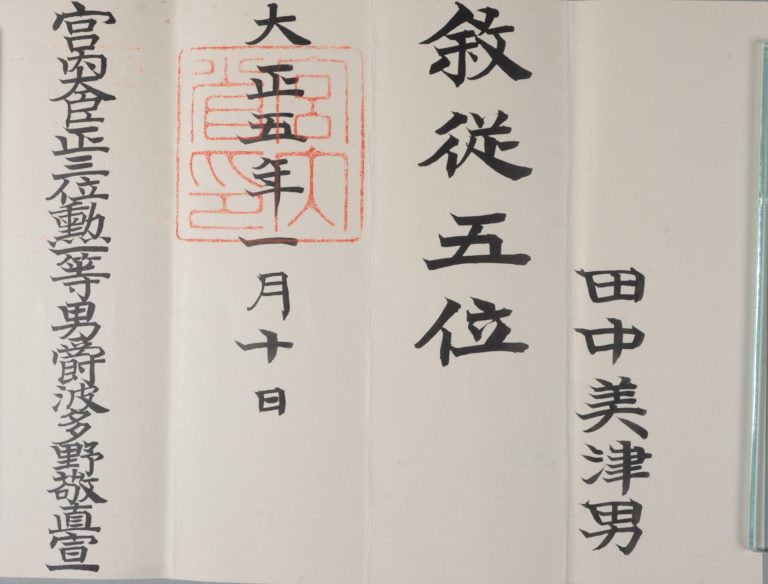 田中美津男
敘従五位
大正五年一月十日
宮内大臣正三位勳一等男爵波多野敬直宣